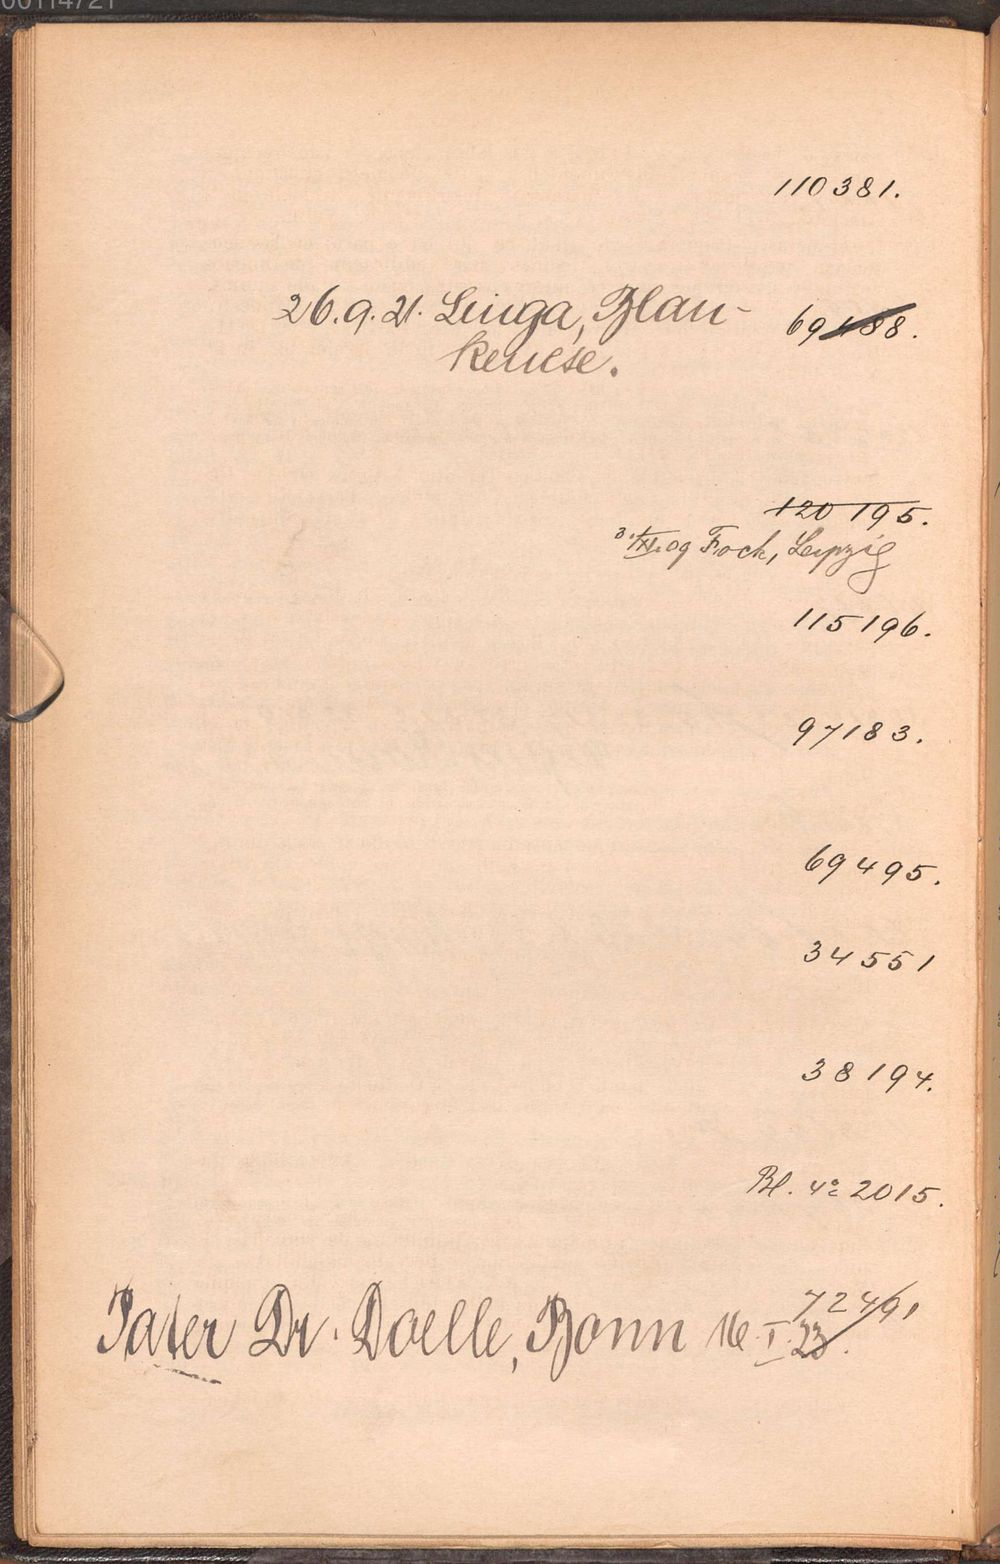 00114721
110381.
26.9.21. Linga, Blan-
kenese.
69488.
120 195.
3. XI. 09 Fock, Leipzig
115196.
97183.
69495.
34551
38194.
Bl. 4° 2015.
72491
Pater Dr. Doelle, Bonn 16. I. 23.